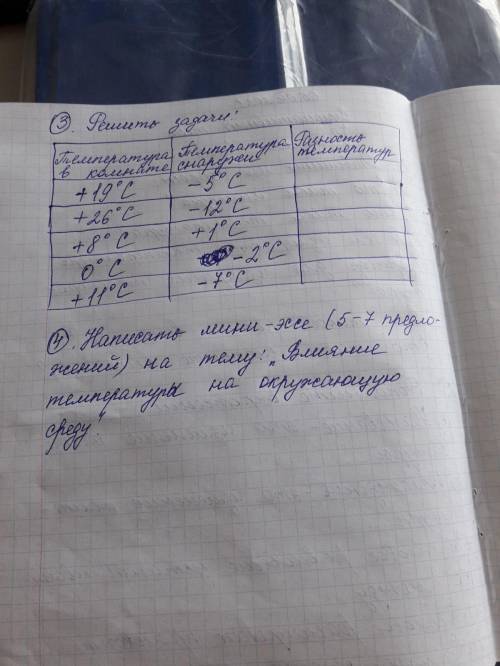 ③. Решить задачи:
Температура в комнате | Температура снаружи | Разность температур
+19°C | -5°C
+26°C | -12°C
+8°C | +1°C
0°C | -2°C
+11°C | -7°C
④. Написать мини-эссе (5-7 предло-
жений) на тему: „Влияние
температуры на окружающую
среду"